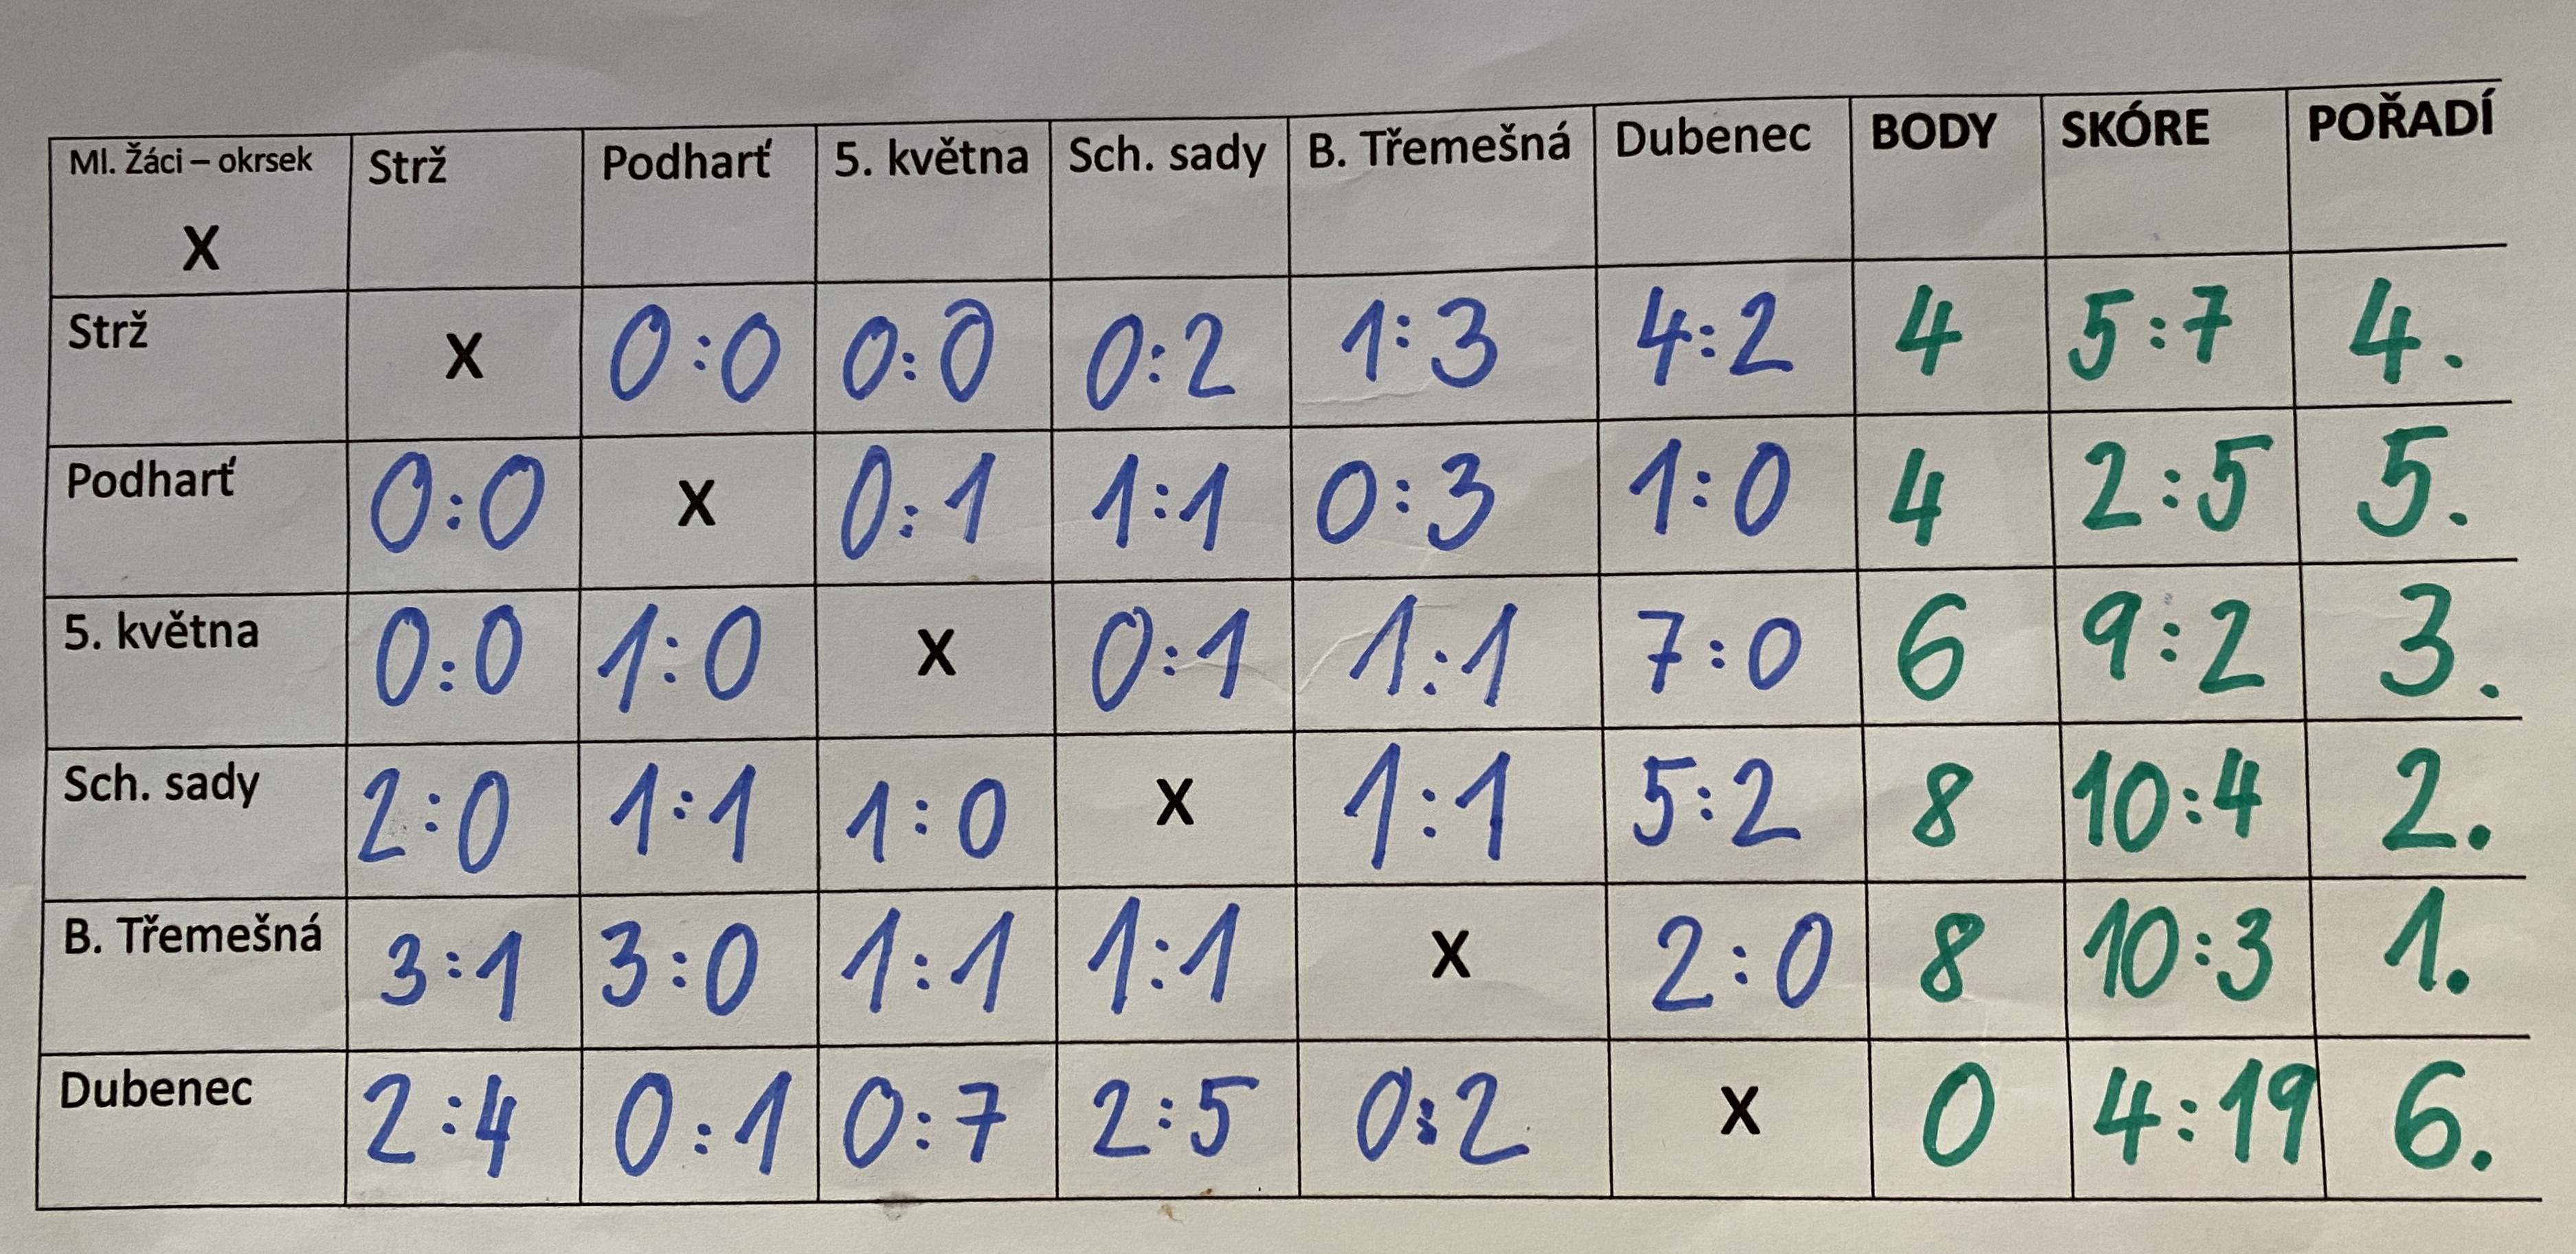 Ml. Žáci – okrsek Strž Podharť 5. května Sch. sady B. Třemešná Dubenec BODY SKÓRE POŘADÍ
X
Strž X 0:0 0:0 0:2 1:3 4:2 4 5:7 4.
Podharť 0:0 X 0:1 1:1 0:3 1:0 4 2:5 5.
5. května 0:0 1:0 X 0:1 1:1 7:0 6 9:2 3.
Sch. sady 2:0 1:1 1:0 X 1:1 5:2 8 10:4 2.
B. Třemešná 3:1 3:0 1:1 1:1 X 2:0 8 10:3 1.
Dubenec 2:4 0:1 0:7 2:5 0:2 X 0 4:19 6.